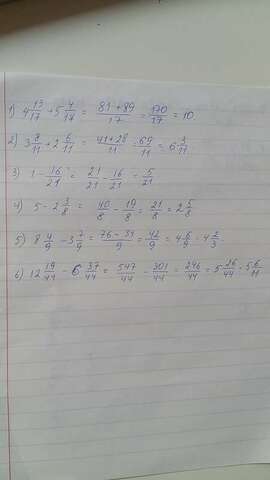 1) 4 13/17 + 5 4/17 = (81+89)/17 = 170/17 = 10
2) 3 8/11 + 2 6/11 = (41+28)/11 = 69/11 = 6 3/11
3) 1 - 16/21 = 21/21 - 16/21 = 5/21
4) 5 - 2 3/8 = 40/8 - 19/8 = 21/8 = 2 5/8
5) 8 4/9 - 3 7/9 = (76-34)/9 = 42/9 = 4 6/9 = 4 2/3
6) 12 19/44 - 6 37/44 = 547/44 - 301/44 = 246/44 = 5 26/44 = 5 6/11